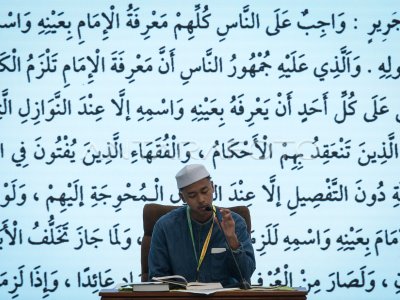 جَرِيرٍ : وَاجِبٌ عَلَى النَّاسِ كُلِّهِمْ مَعْرِفَةُ الْإِمَامِ بِعَيْنِهِ وَاسْمِهِ
وَالَّذِي عَلَيْهِ جُمْهُورُ النَّاسِ أَنَّ مَعْرِفَةَ الْإِمَامِ تَلْزَمُ
عَلَى كُلِّ أَحَدٍ أَنْ يَعْرِفَهُ بِعَيْنِهِ وَاسْمِهِ إِلَّا عِنْدَ النَّوَازِلِ
الَّذِينَ تَنْعَقِدُ بِهِمُ الْأَحْكَامُ ، وَالْفُقَهَاءِ الَّذِينَ يُفْتُونَ فِي
دُونَ التَّفْصِيلِ إِلَّا عِنْدَ الْمُحْوِجَةِ إِلَيْهِمْ ، وَلَوْ
بِعَيْنِهِ وَاسْمِهِ وَلَمَا جَازَ تَخَلُّفُ
عَائِدًا ، وَلَصَارَ مِنْ وَإِذَا